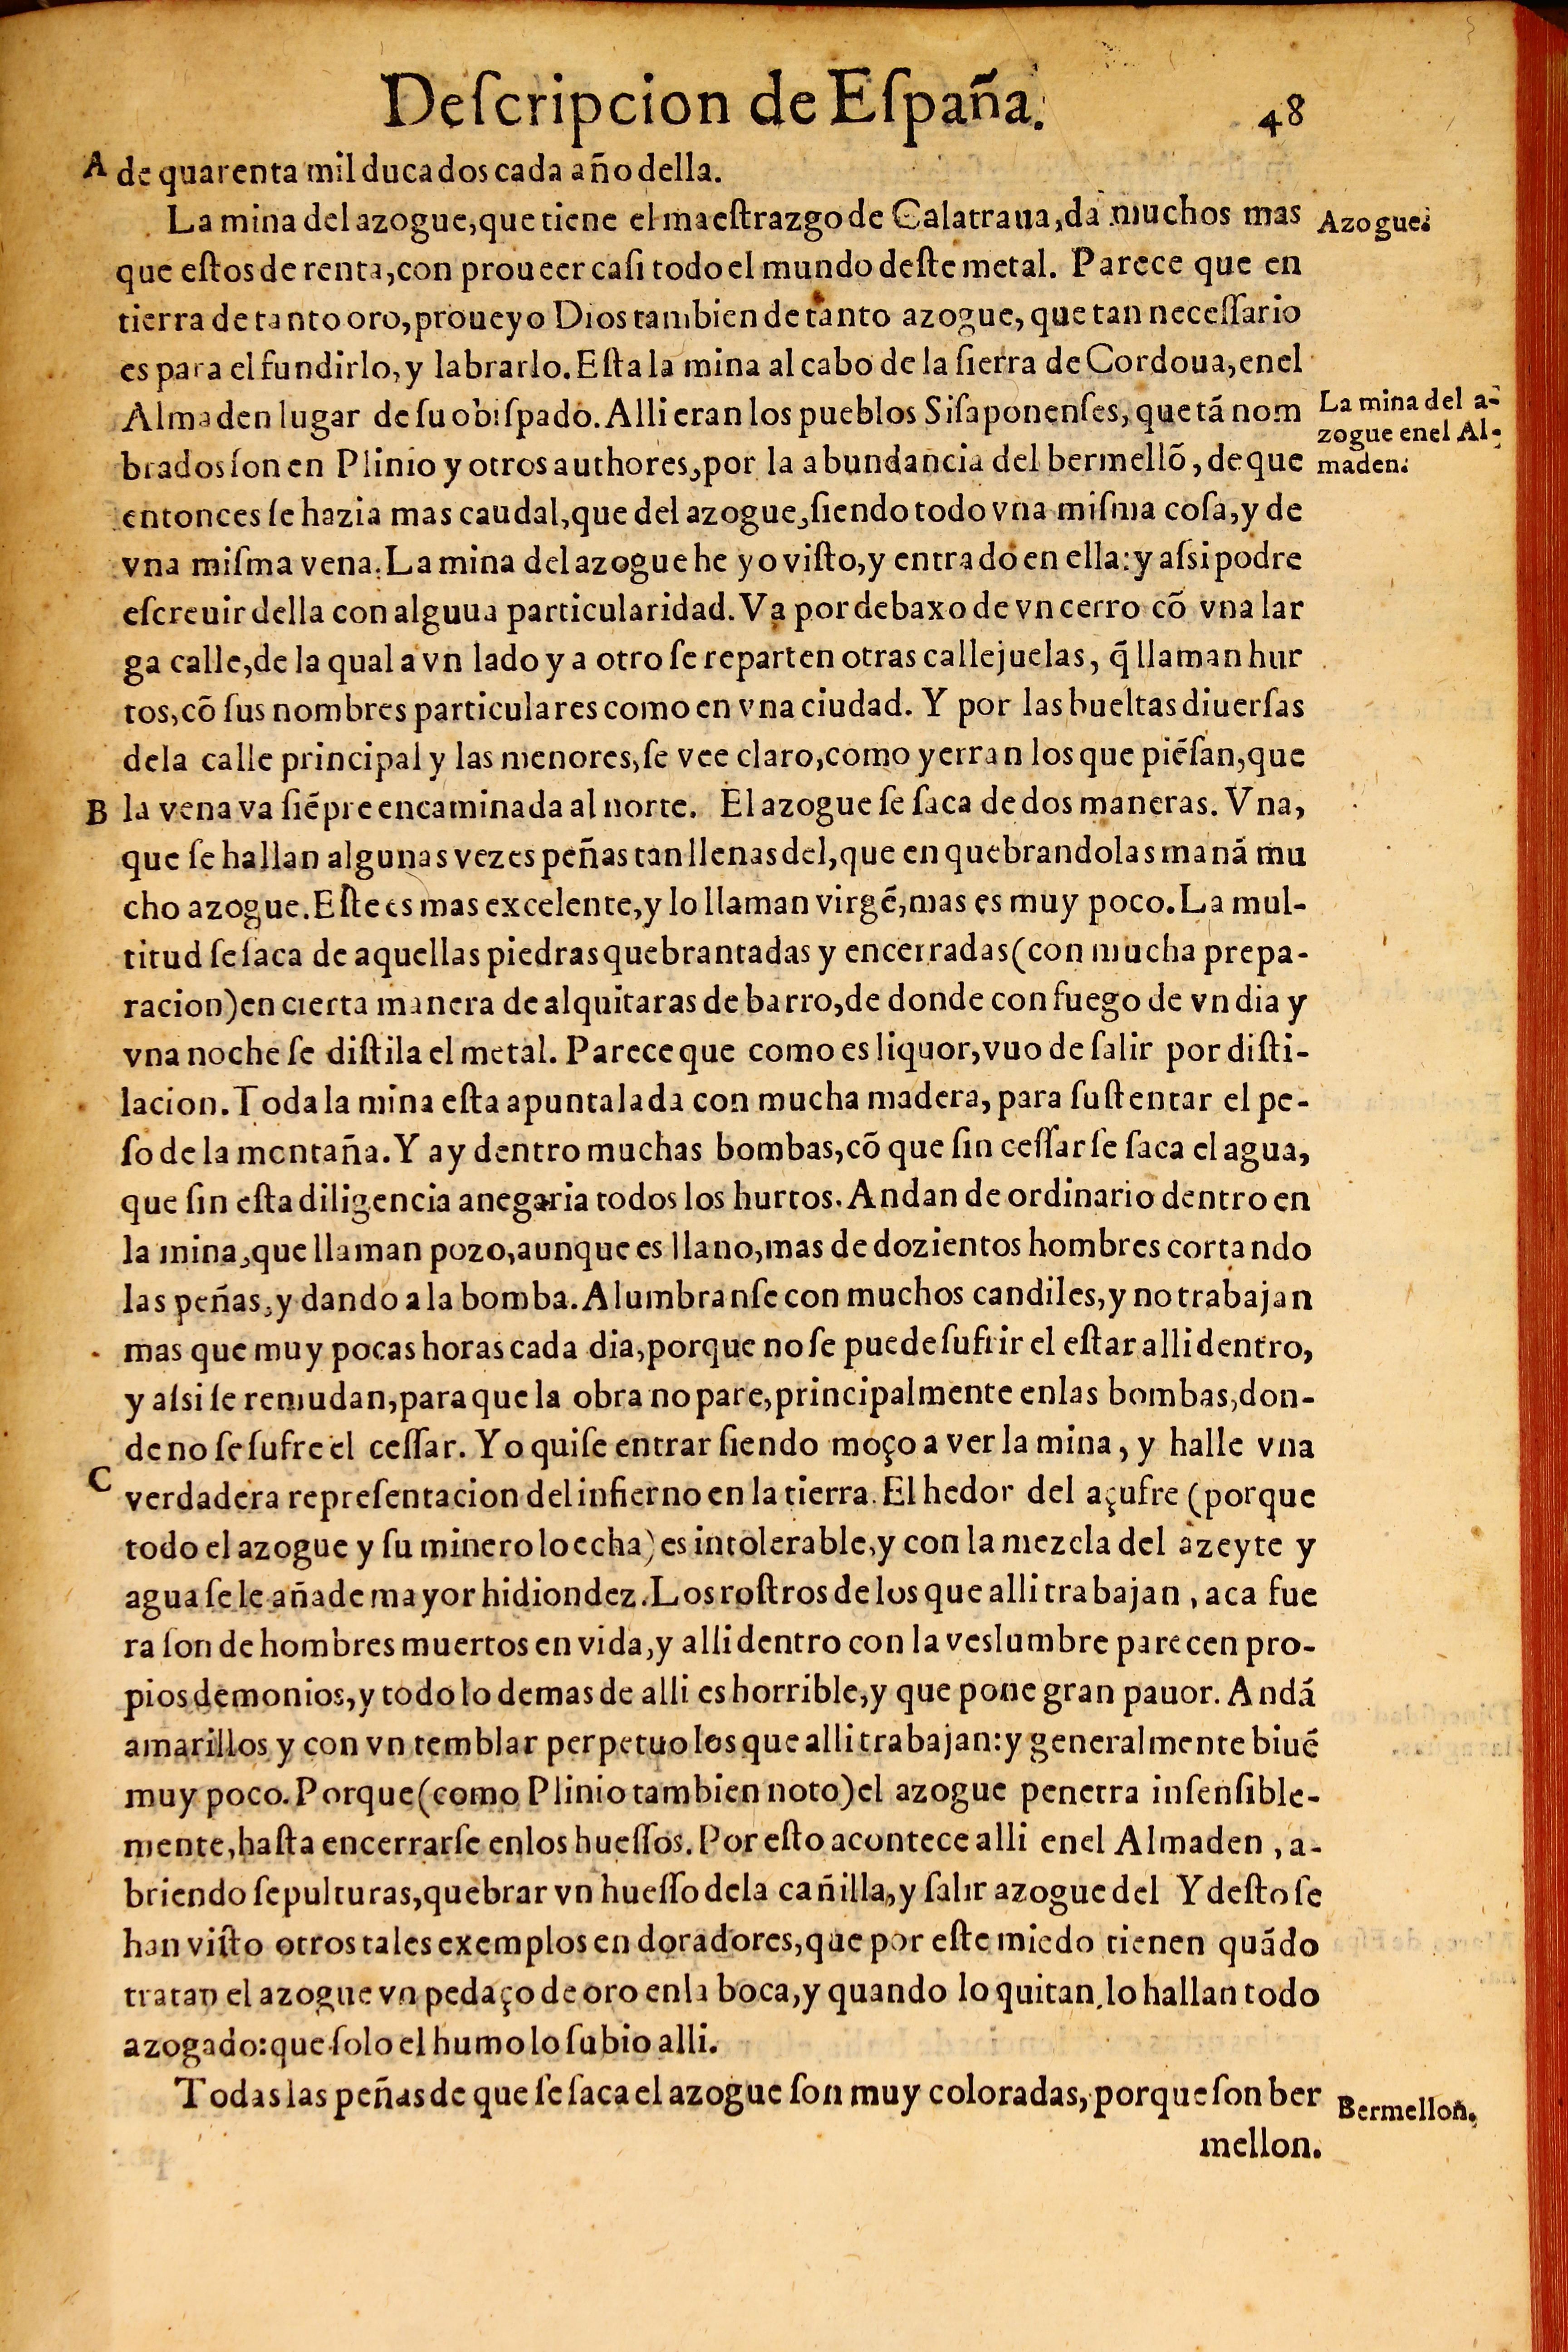 Deſcripcion de Eſpaña. 48
A de quarenta mil ducados cada año della.
La mina del azogue, que tiene el maeſtrazgo de Calatraua, da muchos mas
Azogue.
que eſtos de renta, con proueer caſi todo el mundo deſte metal. Parece que en
tierra de tanto oro, proueyo Dios tambien de tanto azogue, que tan neceſſario
es para el fundirlo, y labrarlo. Eſta la mina al cabo de la ſierra de Cordoua, enel
Almaden lugar de ſu obiſpado. Alli eran los pueblos Siſaponenſes, que tã nom
La mina del a-
zogue enel Al-
maden.
brados ſon en Plinio y otros authores, por la abundancia del bermellõ, de que
entonces ſe hazia mas caudal, que del azogue, ſiendo todo vna miſma coſa, y de
vna miſma vena. La mina del azogue he yo viſto, y entrado en ella: y aſsi podre
eſcreuir della con alguua particularidad. Va por debaxo de vn cerro cõ vna lar
ga calle, de la qual a vn lado y a otro ſe reparten otras callejuelas, q̃ llaman hur
tos, cõ ſus nombres particulares como en vna ciudad. Y por las bueltas diuerſas
dela calle principal y las menores, ſe vee claro, como yerran los que piẽſan, que
B la vena va ſiẽpre encaminada al norte. El azogue ſe ſaca de dos maneras. Vna,
que ſe hallan algunas vezes peñas tan llenas del, que en quebrandolas manã mu
cho azogue. Eſte es mas excelente, y lo llaman virgẽ, mas es muy poco. La mul-
titud ſe ſaca de aquellas piedras quebrantadas y encerradas (con mucha prepa-
racion) en cierta manera de alquitaras de barro, de donde con fuego de vn dia y
vna noche ſe diſtila el metal. Parece que como es liquor, vuo de ſalir por diſti-
lacion. Toda la mina eſta apuntalada con mucha madera, para ſuſtentar el pe-
ſo de la montaña. Y ay dentro muchas bombas, cõ que ſin ceſſar ſe ſaca el agua,
que ſin eſta diligencia anegaria todos los hurtos. Andan de ordinario dentro en
la mina, que llaman pozo, aunque es llano, mas de dozientos hombres cortando
las peñas, y dando a la bomba. Alumbranſe con muchos candiles, y no trabajan
mas que muy pocas horas cada dia, porque no ſe puede ſufrir el eſtar alli dentro,
y aſsi ſe remudan, para que la obra no pare, principalmente enlas bombas, don-
de no ſe ſufre el ceſſar. Yo quiſe entrar ſiendo moço a ver la mina, y halle vna
C verdadera repreſentacion del infierno en la tierra. El hedor del açufre (porque
todo el azogue y ſu minero lo echa) es intolerable, y con la mezcla del azeyte y
agua ſe le añade mayor hidiondez. Los roſtros de los que alli trabajan, aca fue
ra ſon de hombres muertos en vida, y alli dentro con la veslumbre parecen pro-
pios demonios, y todo lo demas de alli es horrible, y que pone gran pauor. Andã
amarillos y con vn temblar perpetuo los que alli trabajan: y generalmente biuẽ
muy poco. Porque (como Plinio tambien noto) el azogue penetra inſenſible-
mente, haſta encerrarſe enlos hueſſos. Por eſto acontece alli enel Almaden, a-
briendo ſepulturas, quebrar vn hueſſo dela cañilla, y ſalir azogue del Y deſto ſe
han viſto otros tales exemplos en doradores, que por eſte miedo tienen quãdo
tratan el azogue vn pedaço de oro enla boca, y quando lo quitan, lo hallan todo
azogado: que ſolo el humo lo ſubio alli.
Todas las peñas de que ſe ſaca el azogue ſon muy coloradas, porque ſon ber
Bermellon.
mellon.